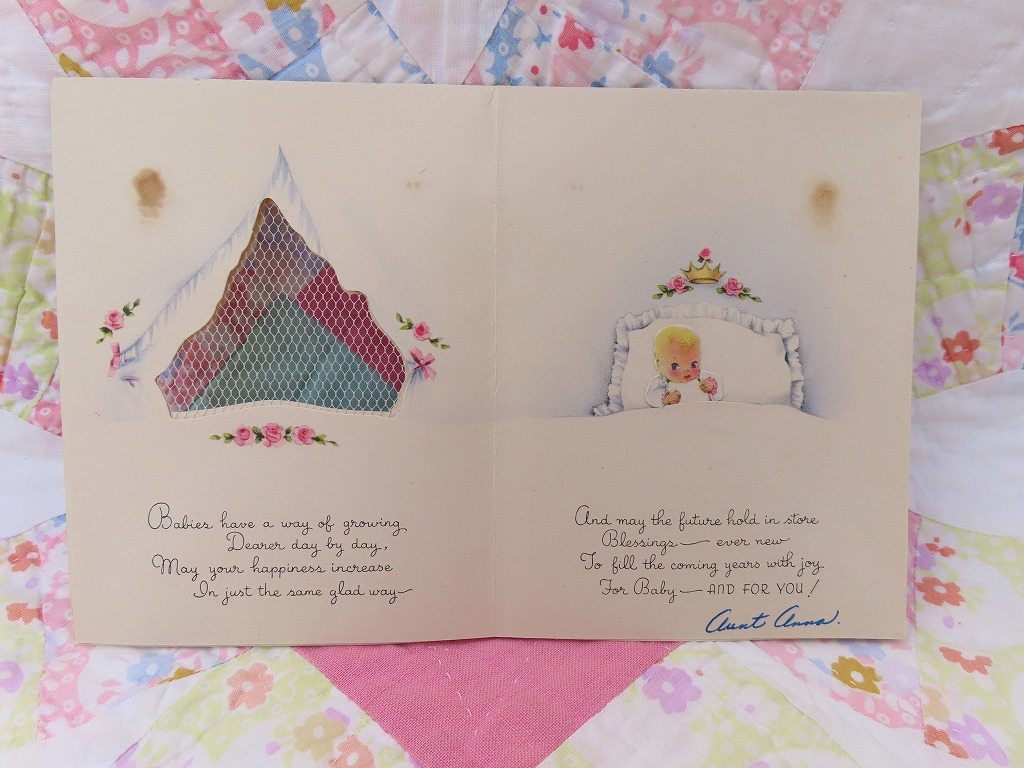 Babies have a way of growing
Dearer day by day,
May your happiness increase
In just the same glad way—
And may the future hold in store
Blessings — ever new
To fill the coming years with joy
For Baby — AND FOR YOU!
Aunt Anna.